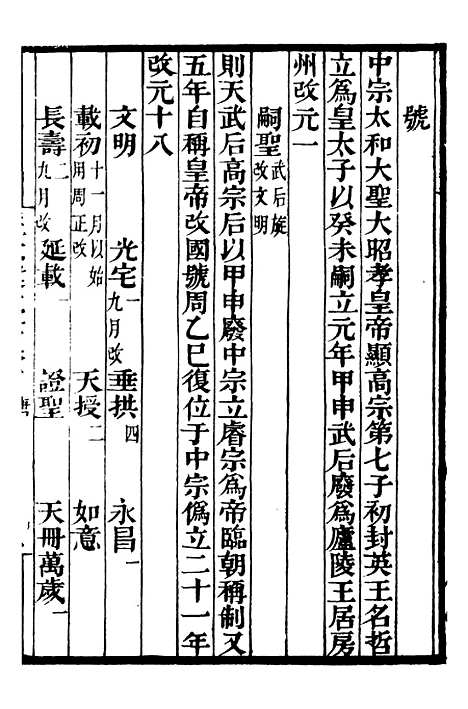 號
中宗太和大聖大昭孝皇帝顯高宗第七子初封英王名哲
立爲皇太子以癸未嗣立元年甲申武后廢爲廬陵王居房
州改元一
嗣聖武后旋改文明
則天武后高宗后以甲申廢中宗立睿宗爲帝臨朝稱制又
五年自稱皇帝改國號周乙巳復位于中宗僞立二十一年
改元十八
文明 光宅一九月改 垂拱四 永昌一
載初十一月以始用周正改 天授二 如意
長壽二九月改 延載一 證聖 天冊萬歲一